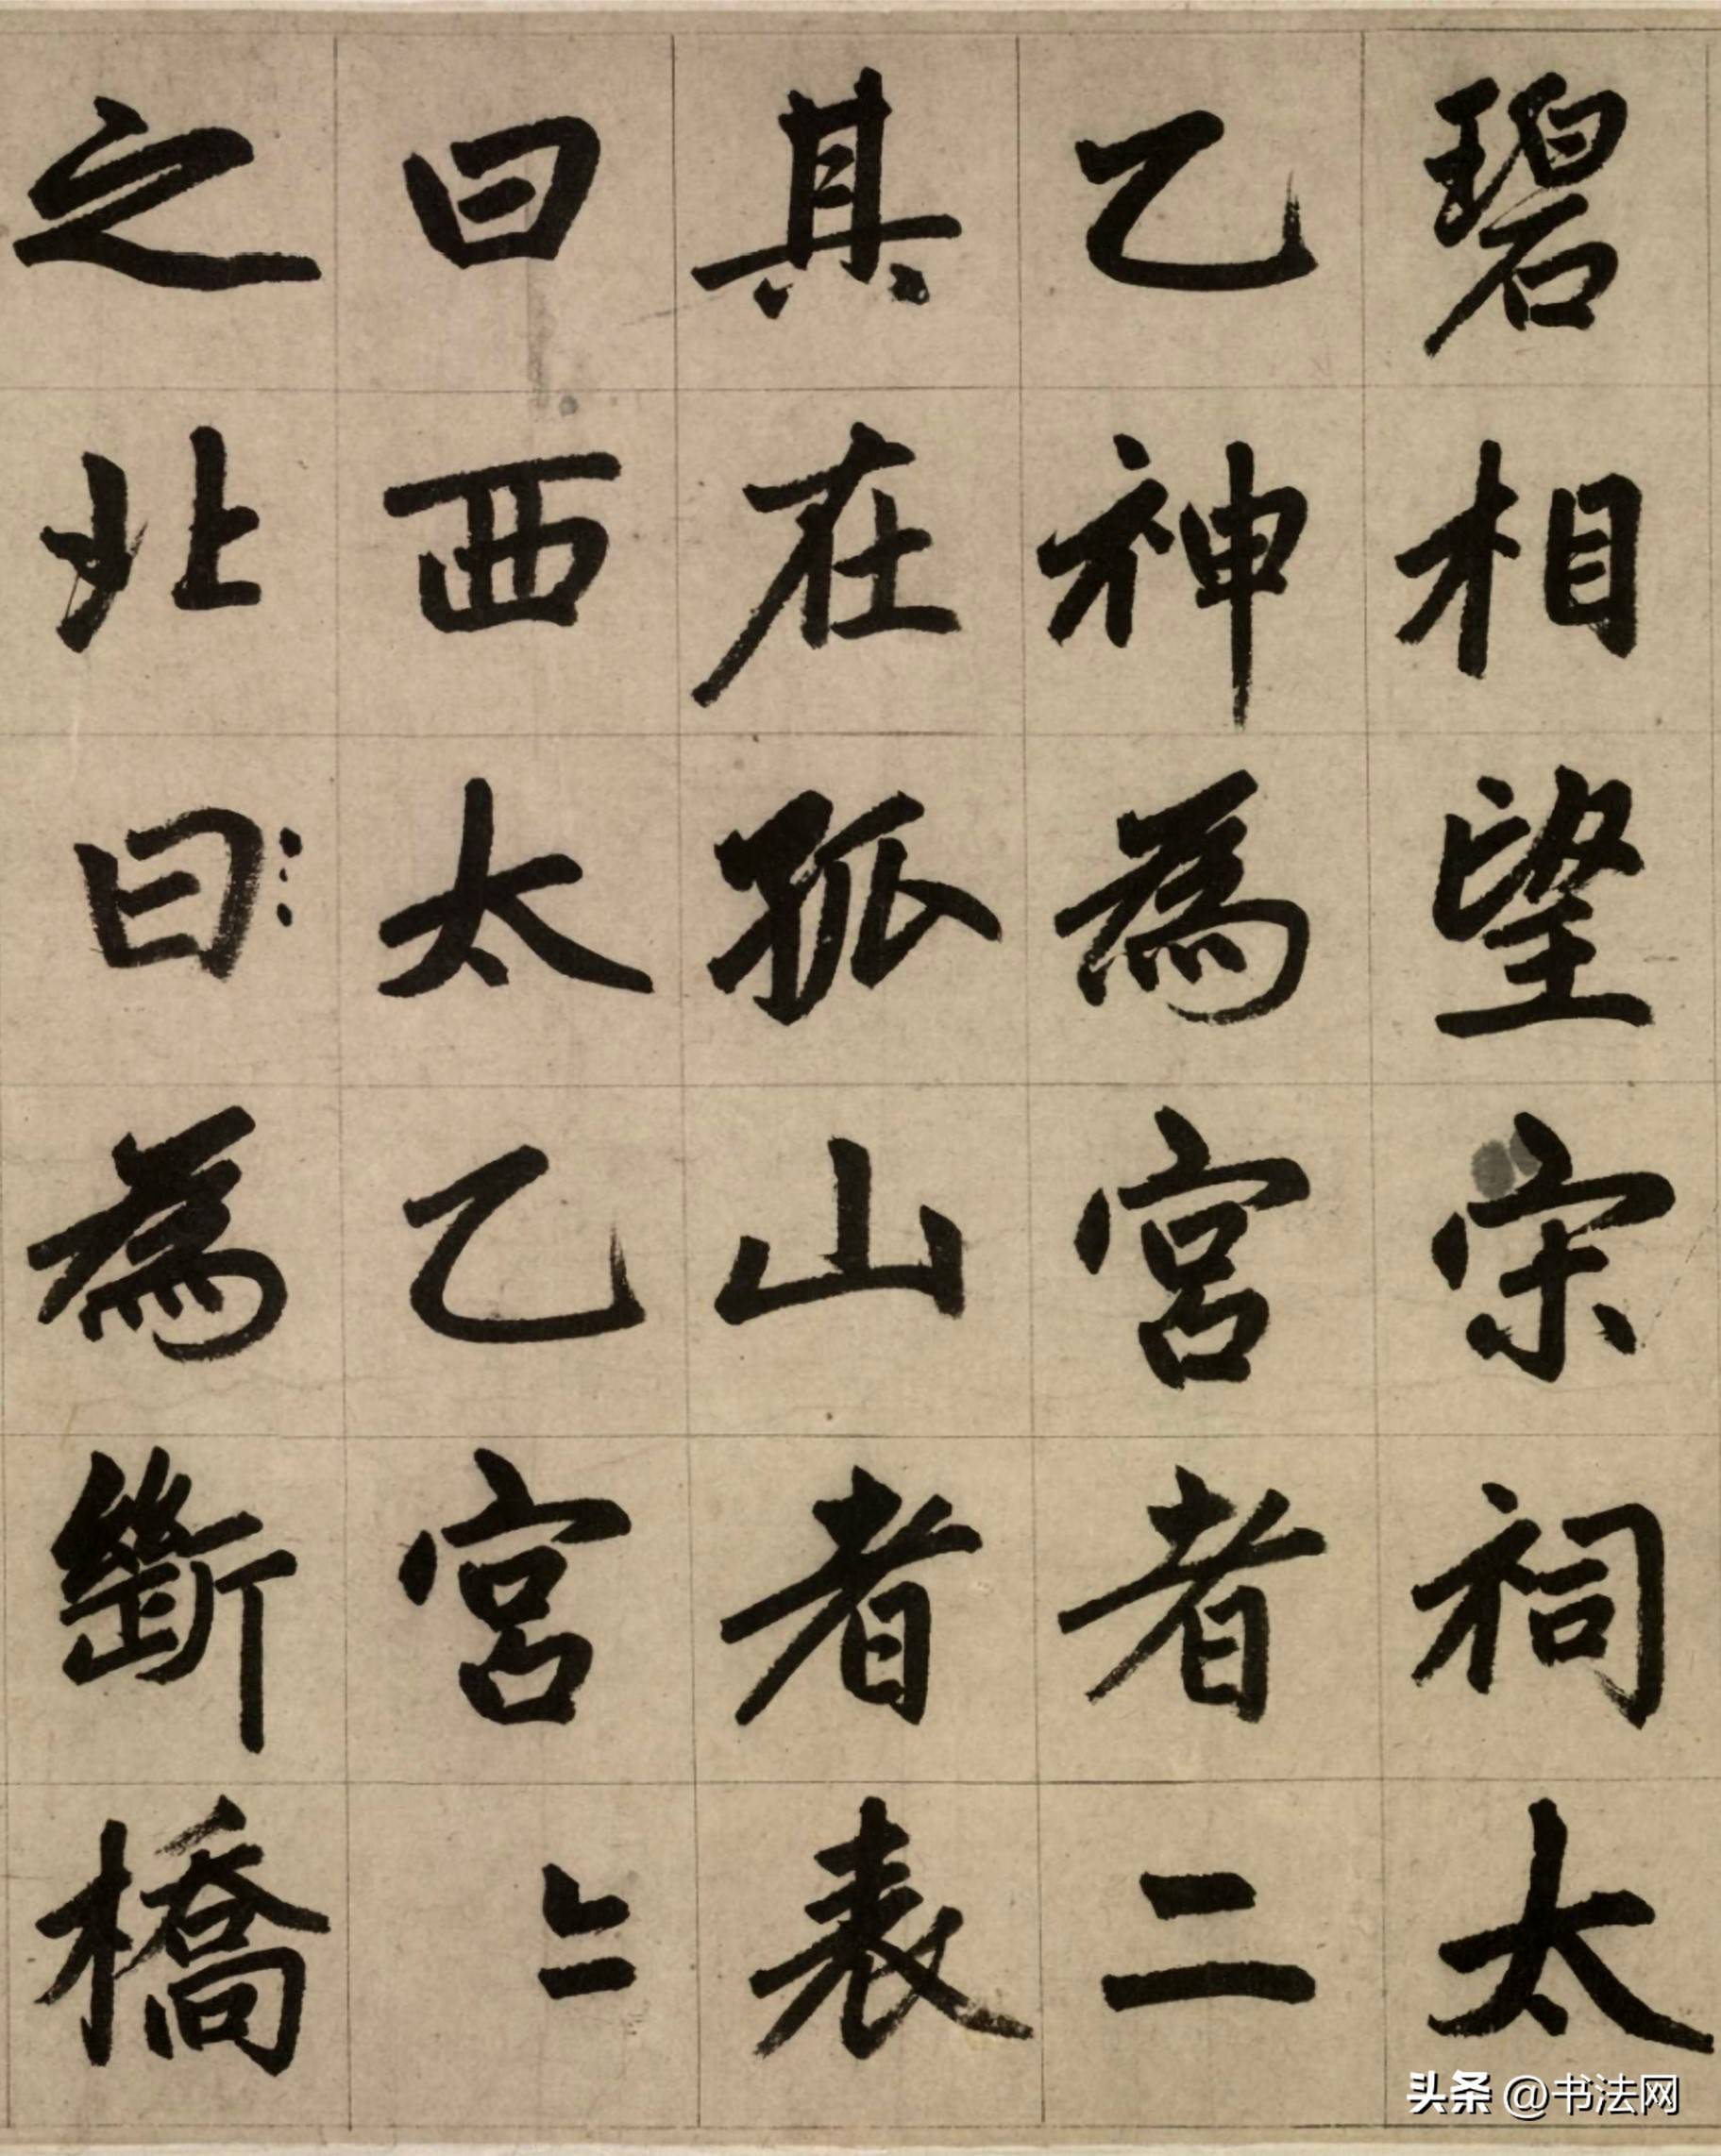 碧相望宋祠太
乙神為宮者二
其在孤山者表
曰西太乙宮〻
之北曰為斷橋
头条 @书法网